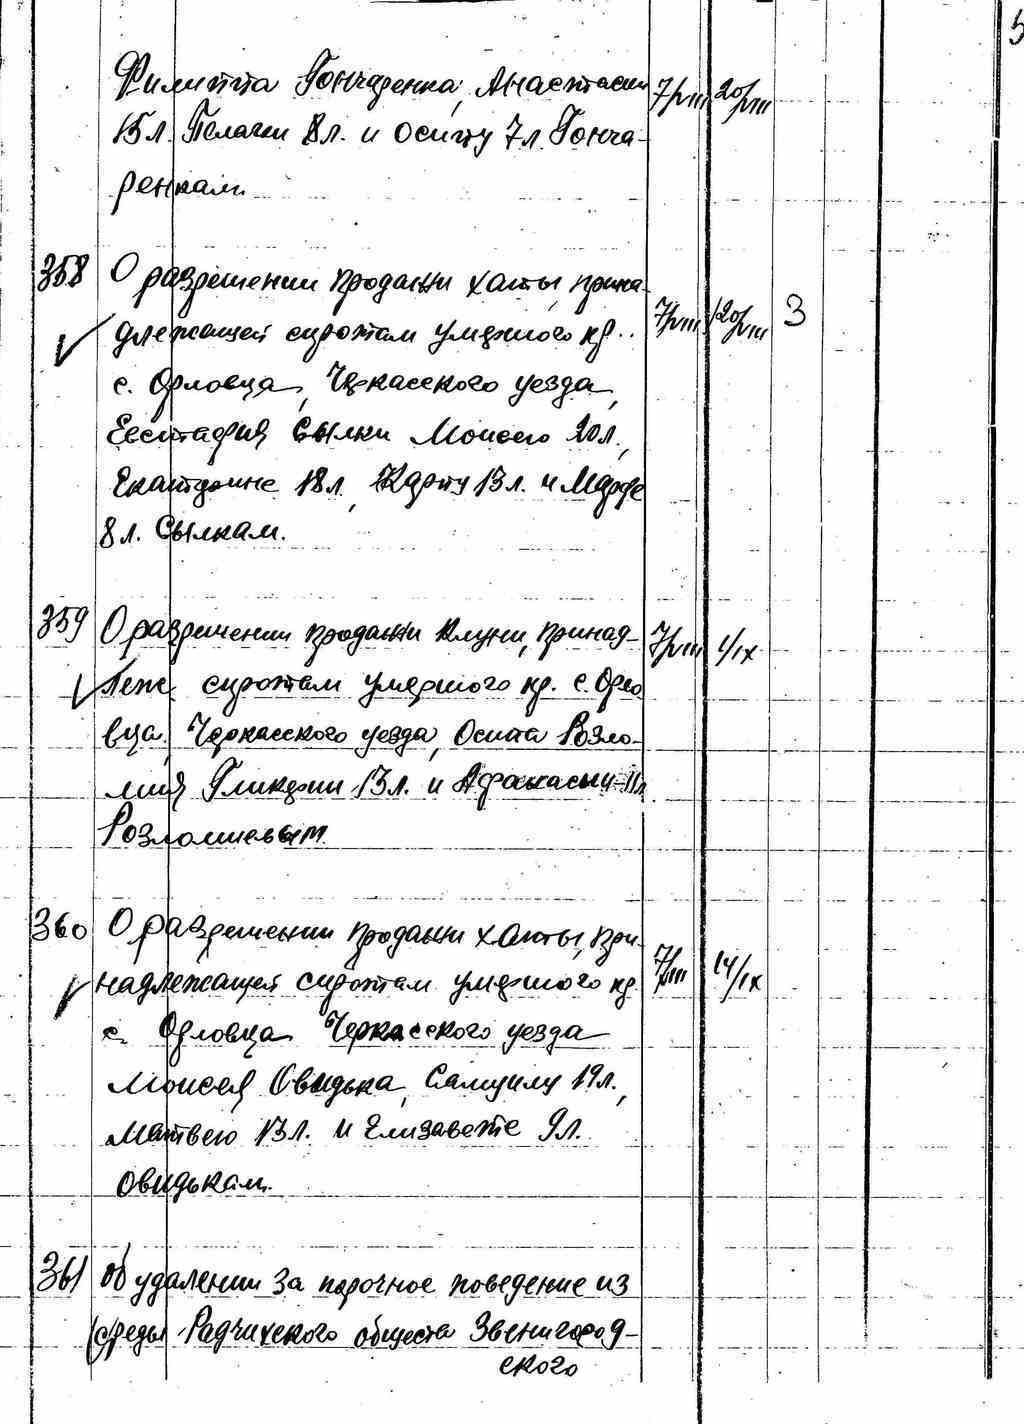 5
Филиппа Гончаренка, Анастасии 7/VIII 20/VIII
15 л. Пелагеи 8 л. и Осипу 7 л. Гонча-
ренкам.
358 О разрешении продажи хаты, прина- 7/VIII 20/VIII 3
длежащей сиротам умершого кр.
с. Орловца, Черкасского уезда,
Евстафия Сылки Моисею 20 л.,
Екатерине 18 л., Карпу 13 л. и Марфе
8 л. Сылкам.
359 О разрешении продажи клуни, принад- 7/VIII 1/IX
леж. сиротам умершого кр. с. Орло
вца, Черкасского уезда, Осипа Розло-
мия Гликерии 13 л. и Афанасыи 11 л
Розломиевым.
360 О разрешении продажи хаты, при- 7/VIII 14/IX
надлежащей сиротам умершого кр.
с. Орловца Черкасского уезда
Моисея Овидька, Самуилу 19 л.,
Матвею 13 л. и Елизавете 9 л.
Овидькам.
361 Об удалении за порочное поведение из
среды Радчихского общества Звенигород-
ского